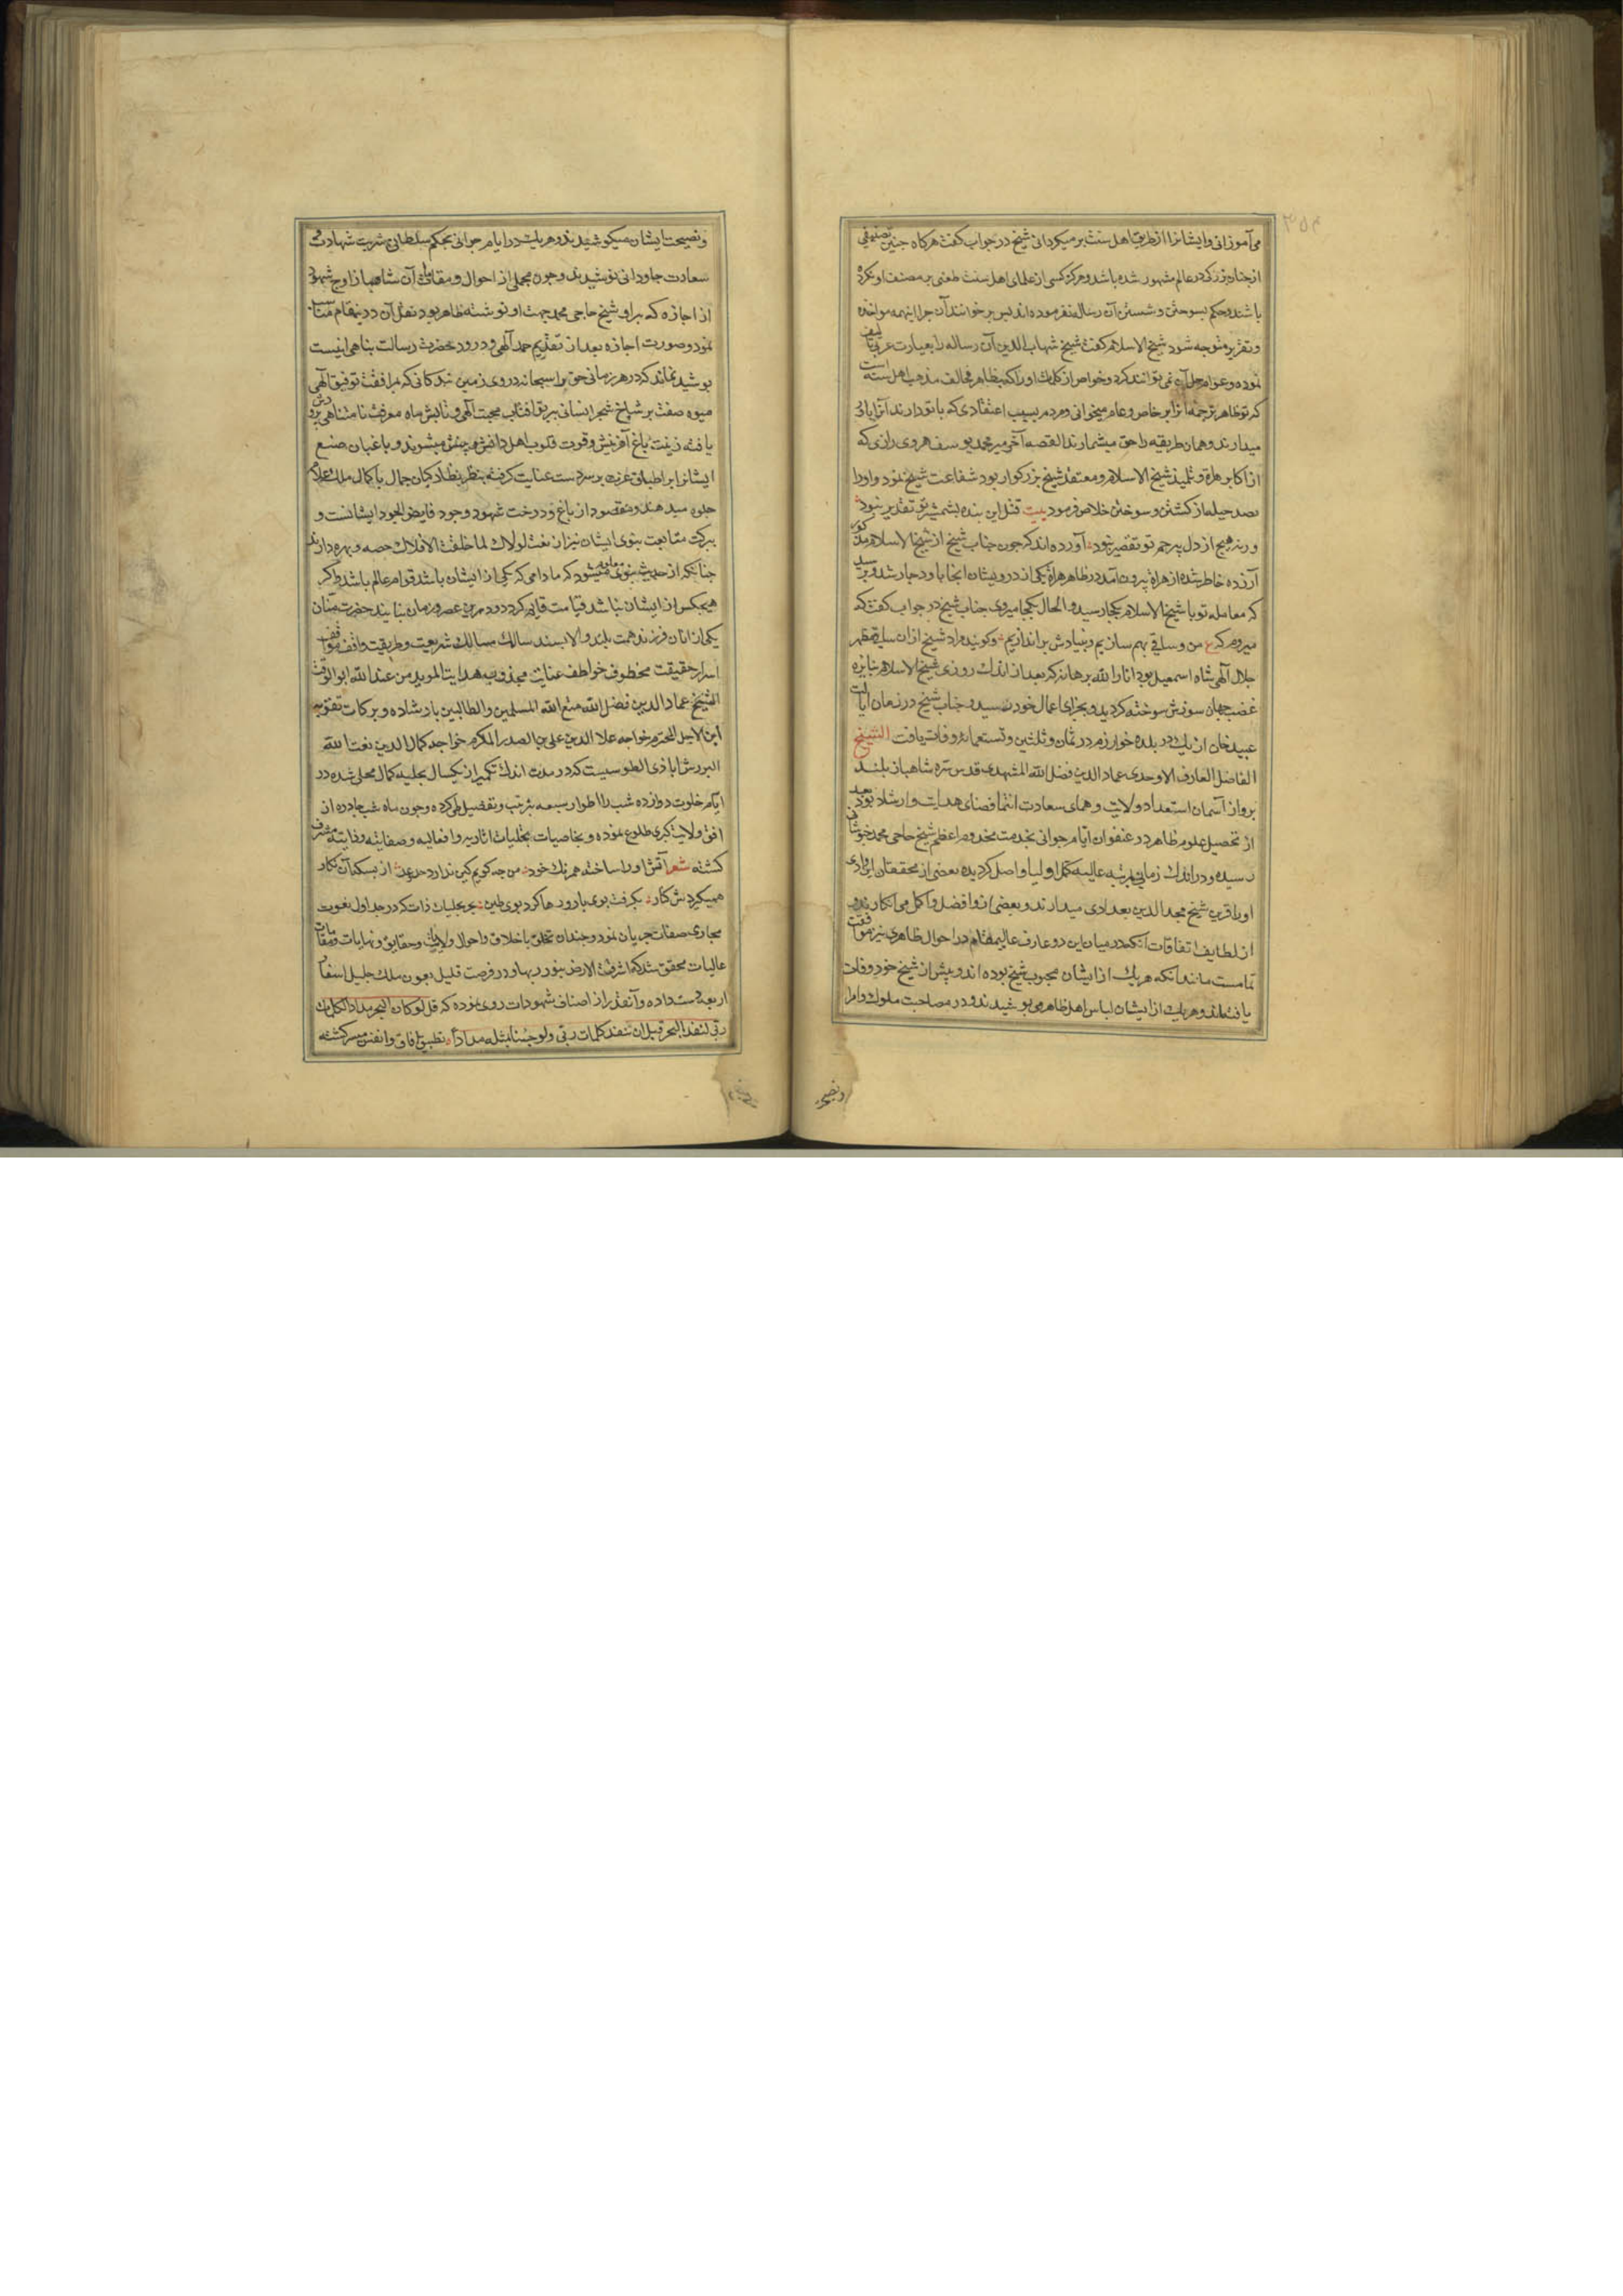 می‌آموزانی وایشانرا از طریق اهل سنت برمیکردانی شیخ در جواب کفت هرکاه جنین تصنیفی
از جناب بزرکی در عالم مشهور شده باشد و هرکز کسی از علمای اهل سنت طعنی بر مصنف او نکرده
باشند و حکم بسوختن و شستن آن رساله نفرموده‌اند بس بر خواننده آن جرا اینهمه مواخذه
و تقریر متوجه شود شیخ الاسلام کفت شیخ شهاب الدین آن رساله را بعبارت عربی تالیف
نموده و عوام حل آن نمی‌توانند کرد و خواص از کلمات او را که بظاهر مخالف مذهب اهل سنت است
که تو ظاهر ترجمه آنرا بر خاص و عام میخوانی و مردم بسبب اعتقادی که با تو دارند آنرا باور
میدارند و همان طریقه را حق میشمارند القصه آخر میر محمد یوسف هروی رازی که
از اکابر هراة و تلمیذ شیخ الاسلام و معتقد شیخ بزرکوار بود شفاعت شیخ نمود و او را
بصد حیله از کشتن و سوختن خلاص فرمود بیت قتل این بنده بشمشیر تو تقدیر نبود
ورنه هیج از دل بیرحم تو تقصیر نبود آورده‌اند که جون جناب شیخ از شیخ الاسلام مذکور
آزرده خاطر شده از هراة بیرون آمد در ظاهر هراة یکی از درویشان آنجا باو دجار شد و برسید
که معامله تو با شیخ الاسلام بکجا رسید و الحال بکجا میروی جناب شیخ در جواب کفت که
میروم که ع من و ساقی بهم سازیم و بنیادش براندازیم و کویند مراد شیخ از ان ساقی مظهر
جلال آلهی شاه اسمعیل بود انار الله برهانه که بعد از اندک روزی شیخ الاسلام بنایره
غضب جهان سوزش سوخته کردید و بجزای اعمال خود رسید و جناب شیخ در زمان ایالت
عبید خان ازبک در بلده خوارزم در ثمان و ثلثین و تسعمائه وفات یافت الشیخ
الفاضل العارف الاوحدی عماد الدین فضل الله المشهدی قدس سره شاهباز بلند
برواز آسمان استعداد ولایت و همای سعادت انتما فضای هدایت و ارشاد بود بعد
از تحصیل علوم ظاهر در عنفوان ایام جوانی بخدمت مخدوم اعظم شیخ حاجی محمد خبوشانی
رسیده و در اندک زمانی بمرتبه عالیه کمل اولیا واصل کردیده بعضی از محققان این وادی
او را قرین شیخ مجد الدین بغدادی میدارند و بعضی ازو افضل و اکمل می‌انکارند و
از لطایف اتفاقات آنکه در میان این دو عارف عالیمقام در احوال ظاهری نیز موافقت
تمامست مانند آنکه هر یک از ایشان محبوب شیخ بوده‌اند و بیش از شیخ خود وفات
یافته‌اند و هر یک از ایشان لباس اهل ظاهر می‌بوشیدند و در مصاحبت ملوک و امرا
ونصیحت
و نصیحت ایشان میکوشیدند و هر یک در ایام جوانی بحکم سلطانی شربت شهادت و
سعادت جاودانی نوشیدند و جون مجملی از احوال و مقامات آن شاهباز اوج شهود
از اجازه که براو شیخ حاجی محمد جهت او نوشته ظاهر بود نقل آن درینمقام مناسب
نمود و صورت اجازه بعد از تقدیم حمد آلهی و درود حضرت رسالت بناهی اینست
بوشیده نماند که در هر زمانی حق را سبحانه در روی زمین بندکانی که بمرافقت توفیق آلهی
میوه صفت بر شاخ شجر انسانی ببرتو آفتاب محبت آلهی و تابش ماه معرفت نامتناهی برورش
یافته زینت باغ آفرینش و قوت قلوب اهل دانش و بینش میشوند و باغبان صنع
ایشانرا بر اطباق عزت بر سر دست عنایت کرفته بنظر نظارکیان جمال باکمال ملک علام
جلوه میدهند و مقصود از باغ و درخت شهود وجود فایض الجود ایشانست و
ببرکت متابعت نبوی ایشان نیز از نعت لولاک لما خلقت الافلاک حصه و بهره دارند
جنانکه از حدیث نبوی معلوم میشود که مادامی که یکی از ایشان باشد قوام عالم باشد و اکر
هیجکس از ایشان نباشد قیامت قایم کردد و درین عصر و زمان بتایید حضرت منان
یکی از انان فرزند همت بلند والابسند سالک مسالک شریعت و طریقت واقف مواقف
اسرار حقیقت مخطوف خواطف عنایت مجذوب هدایت الموید من عند الله ابو الوقت
الشیخ عماد الدین فضل الله متع الله المسلمین والطالبین بارشاده و برکات تقوته
ابن الاجل المحترم خواجه علاء الدین علی بن الصدر المکرم خواجه کمال الدین نعمت الله
البرزش‌ابادی الطوسیست که در مدت اندک کمتر از یکسال بحلیه کمال محلی شده در
ایام خلوت دوازده شب را اطوار سبعه بترتیب و تفضیل طی کرده و جون ماه شب جارده از
افق ولایت کبری طلوع نموده و بخاصیات تجلیات آثاریه و افعالیه و صفاتیه و ذاتیه مشرف
کشته شعر آتش او را ساخته همرنک خود من جه کویم کین ندارد حد و عد از بس که آن نکار
همیکردش کنار بکرفت بوی یار و رها کرد بوی طین بحر تجلیات ذات که در جداول نعوت
مجاری صفات جریان نمود و جندان تخلق باخلاق و احوال ولایات و حقایق و نهایات و مقامات
عالیات محقق شد که اشرقت الارض بنور ربها و در فرصت قلیل بعون ملک جلیل اسفار
اربعه دست داده و آنقدر از اصناف شهودات روی نموده که قل لو کان البحر مدادا لکلمات
ربی لنفد البحر قبل ان تنفد کلمات ربی ولو جئنا بمثله مددا تطبیق آفاق و انفس میسر کشته